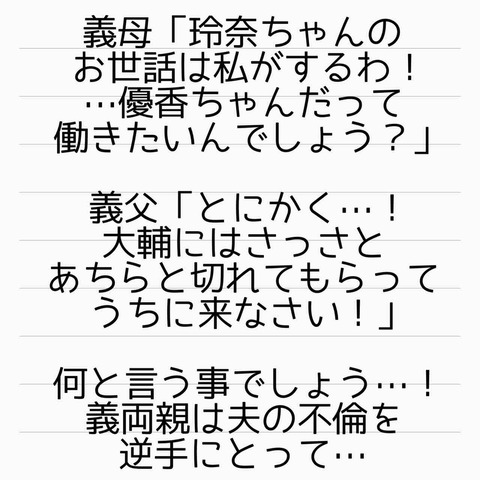 義母「玲奈ちゃんの
お世話は私がするわ！
…優香ちゃんだって
働きたいんでしょう？」
義父「とにかく…！
大輔にはさっさと
あちらと切れてもらって
うちに来なさい！」
何と言う事でしょう…！
義両親は夫の不倫を
逆手にとって…